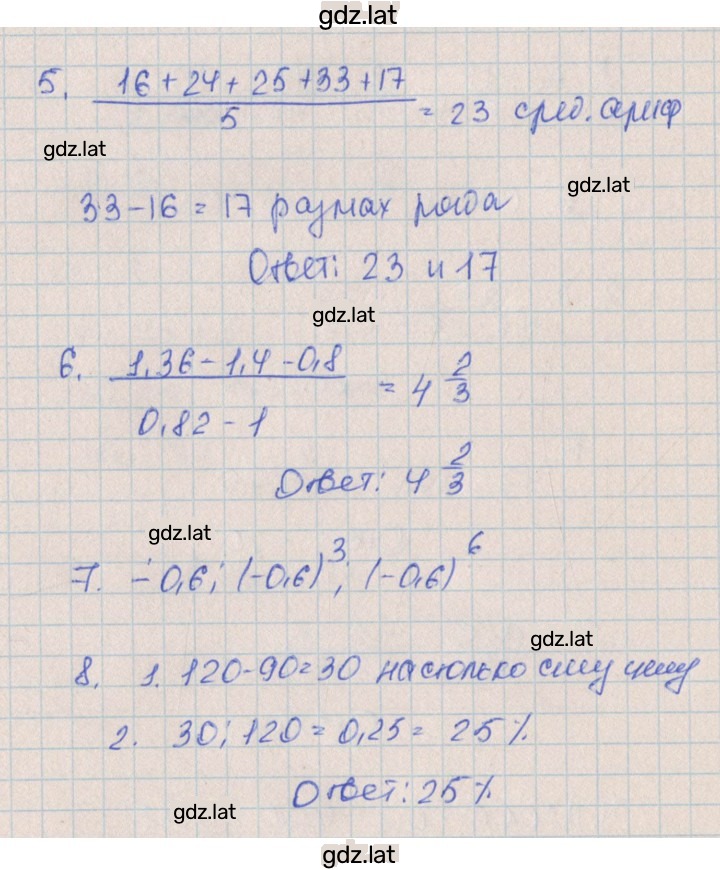 gdz.lat
5. 16 + 24 + 25 + 33 + 17
5
= 23 сред. ариф
gdz.lat
gdz.lat
33 - 16 = 17 размах ряда
Ответ: 23 и 17
gdz.lat
6. 1,36 - 1,4 - 0,8
0,82 - 1
= 4 2/3
Ответ: 4 2/3
gdz.lat
7. -0,6; (-0,6)³; (-0,6)⁶
gdz.lat
8. 1. 120-90=30 настолько сниз цену
2. 30:120 = 0,25 = 25%
Ответ: 25%
gdz.lat
gdz.lat